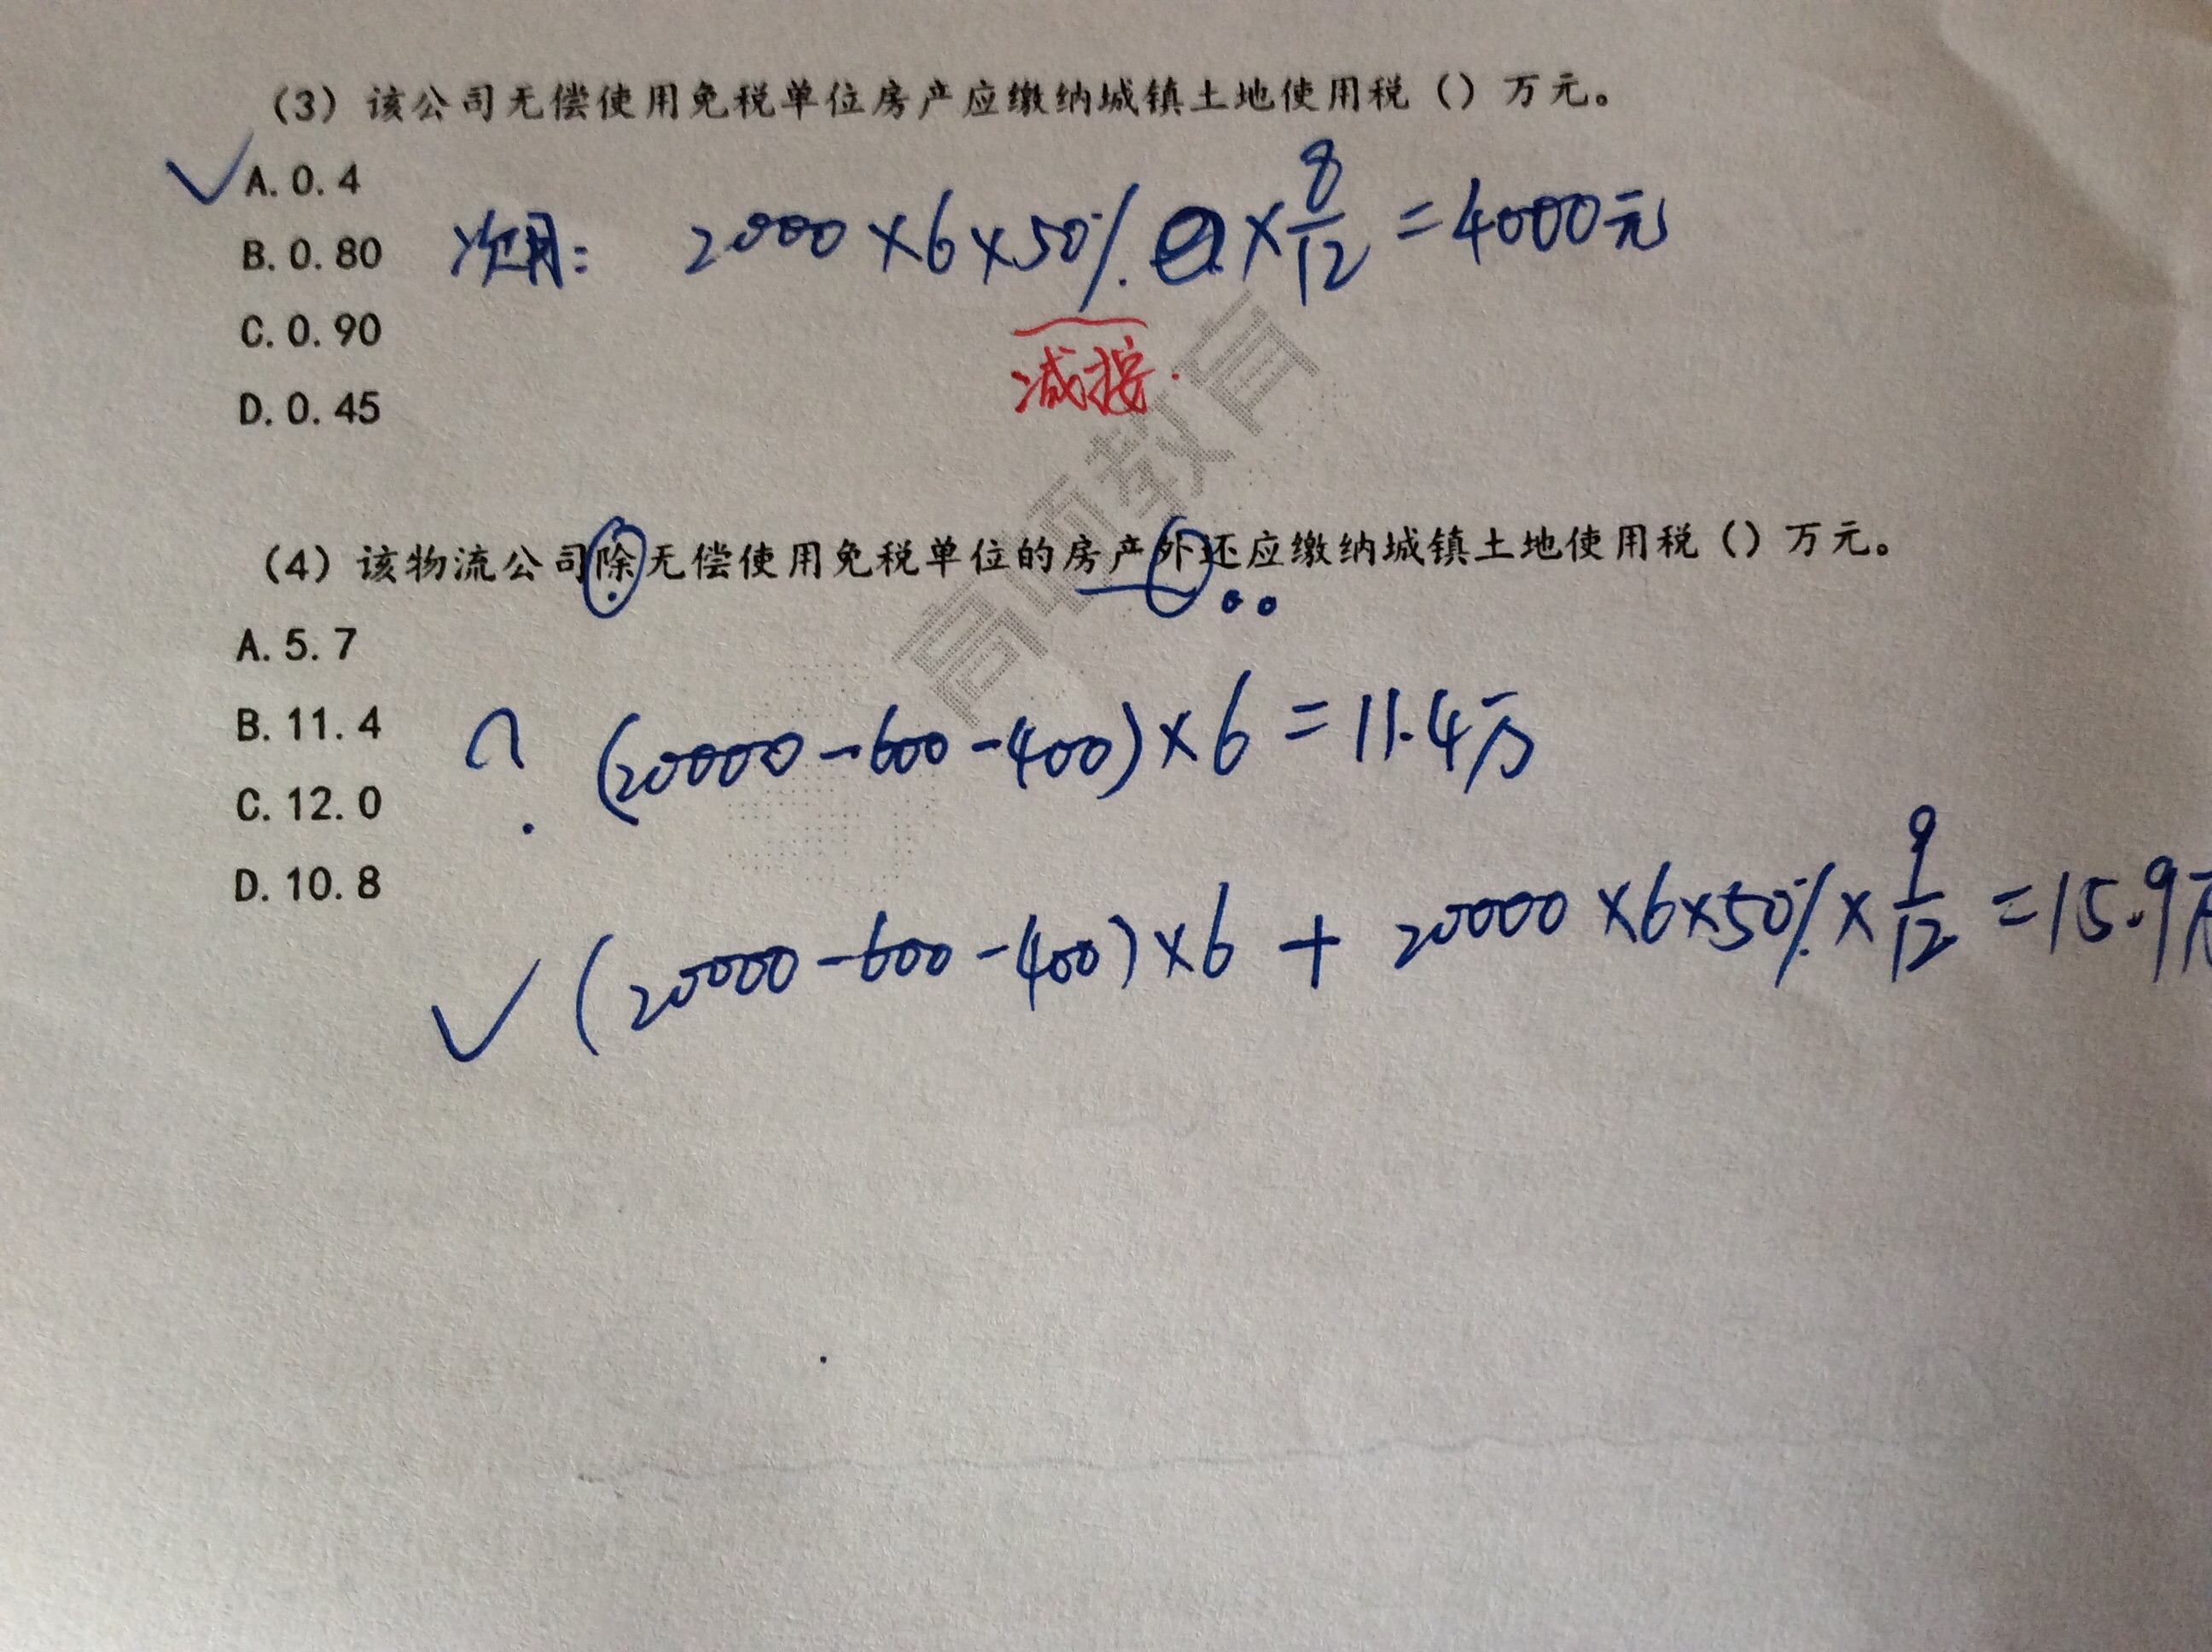 （3）该公司无偿使用免税单位房产应缴纳城镇土地使用税（）万元。
✓A. 0. 4
B. 0. 80 次月： 2000×6×50% ×8/12=4000元
C. 0. 90
减按.
D. 0. 45
高顿教育
（4）该物流公司除无偿使用免税单位的房产外还应缴纳城镇土地使用税（）万元。
A. 5. 7
B. 11. 4 ? (20000-600-400)×6=11.4万
C. 12. 0
D. 10. 8
✓(20000-600-400)×6+20000×6×50%×9/12=15.9万